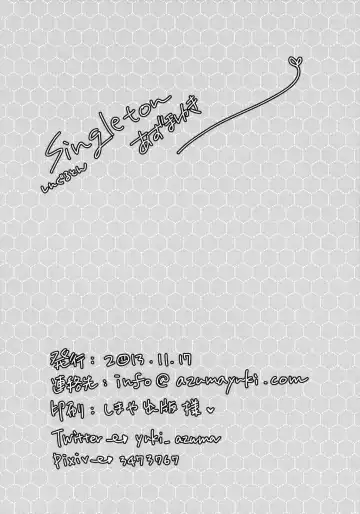 Singleton
しんぐるとん
あずまゆき
発行：2013.11.17
連絡先：info@azumayuki.com
印刷：しまや出版 様♥
Twitter_ID yuki_azuma
Pixiv_ID 3473767